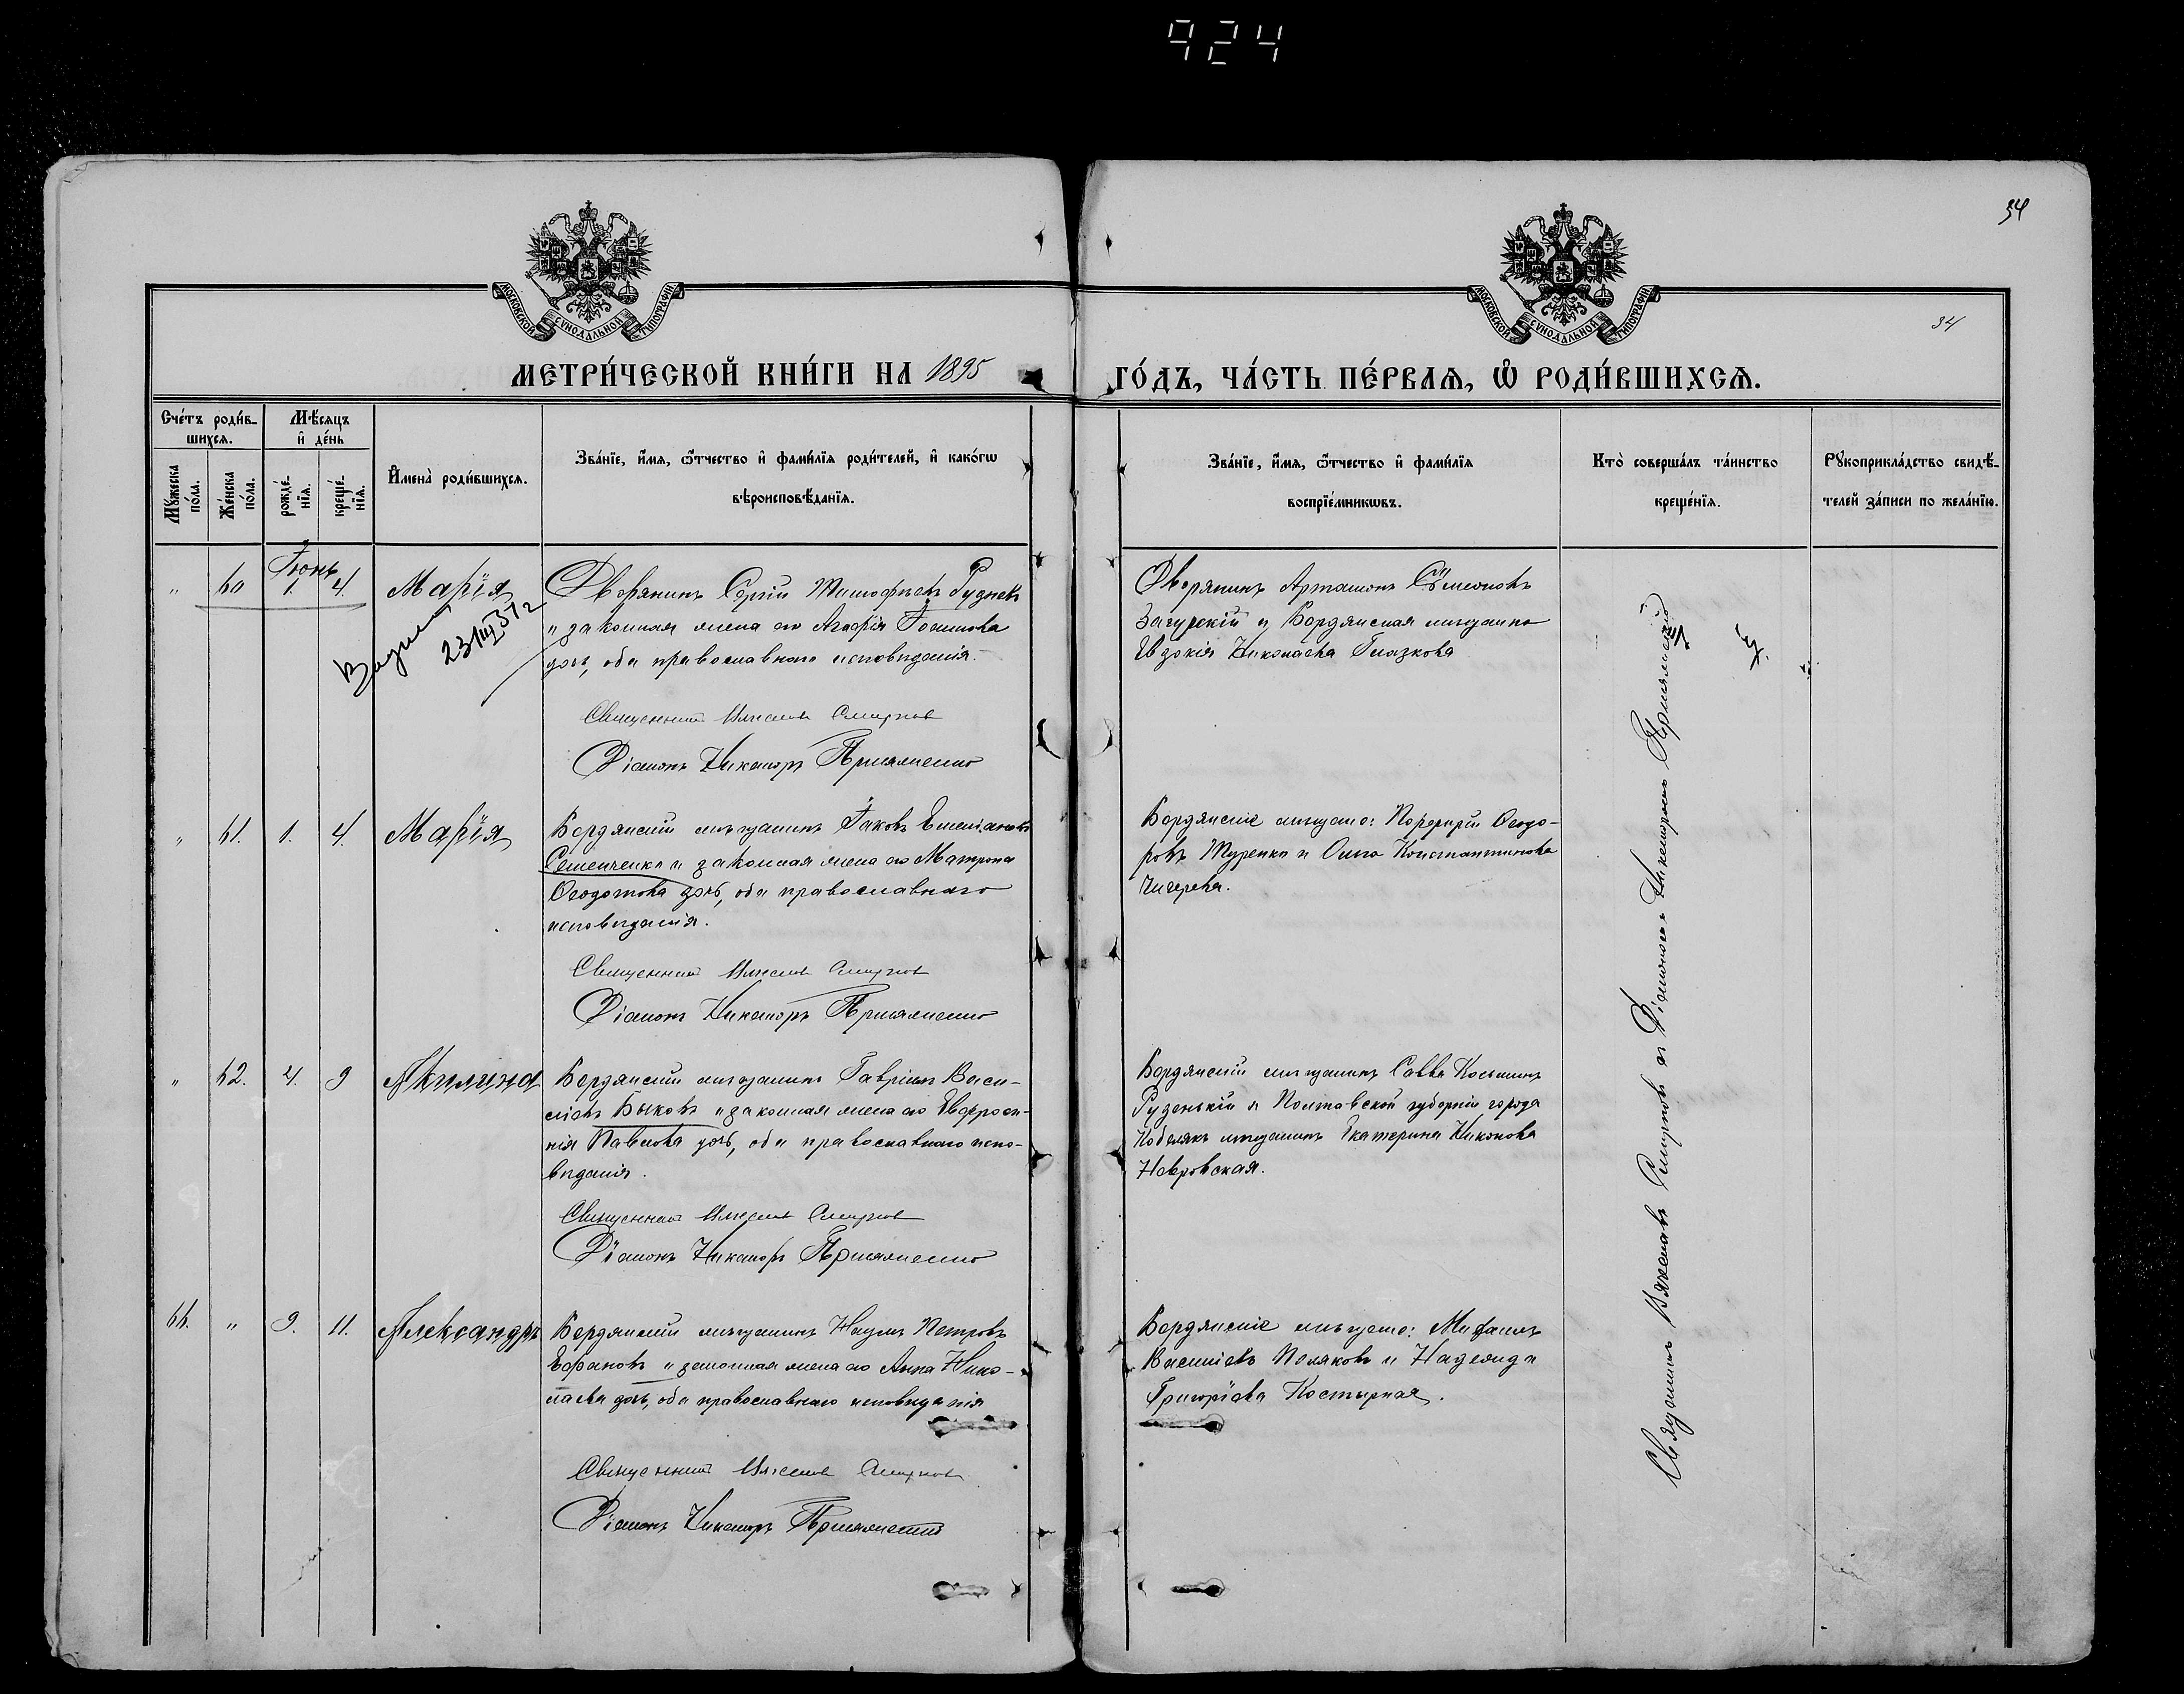 924
34
МОСКОВСКОЙ СѴНОДАЛЬНОЙ ТИПОГРАФІИ
МОСКОВСКОЙ СѴНОДАЛЬНОЙ ТИПОГРАФІИ
34
МЕТРИ́ЧЕСКОЙ КНИ́ГИ НА 1895
ГО́ДЪ, ЧА́СТЬ ПЕ́РВАѦ, Ѡ҆ РОДИ́ВШИХСѦ.
Сче́тъ роди́в-
шихсѧ.
Мѣ́сѧцъ
и҆ де́нь
Мꙋ́жеска
по́ла.
Же́нска
по́ла.
рожде́-
нїѧ.
креще́-
нїѧ.
И҆мена̀ роди́вшихсѧ.
Зва́нїе, и҆́мѧ, ѻ҆́тчество и҆ фами́лїѧ роди́телей, и҆ како́гѡ
вѣроисповѣ́данїѧ.
Зва́нїе, и҆́мѧ, ѻ҆́тчество и҆ фами́лїѧ
воспрїе́мникѡвъ.
Кто̀ соверша́лъ та́инство
креще́нїѧ.
Рꙋкоприкла́дство свидѣ́-
телей за́писи по жела́нїю.
Іюнь
" 60 1. 4. Марія
23 III 37 г
Дворянинъ Сергій Тимофѣевъ Рудневъ
и законная жена его Агафія Іоаннова
дочь, оба православнаго исповѣданія.
Священникъ Смирновъ
Діаконъ Никаноръ
Дворянинъ Артамонъ Сѵмеоновъ
Загурскій и Бердянская мѣщанка
Евдокія Николаева Глазкова
" 61. 1. 4. Марія
Бердянскій мѣщанинъ Іаковъ Емеліановъ
Семенченко и законная жена его Матрона
Ѳеодотова дочь, оба православнаго
исповѣданія.
Священникъ Смирновъ
Діаконъ Никаноръ
Бердянскіе мѣщане: Порфирій Ѳеодо-
ровъ Туренко и Ольга Константинова
Чигерева.
" 62. 4. 9 Акилина
Бердянскій мѣщанинъ Гавріилъ Васи-
ліевъ Быковъ и законная жена его Евфроси-
нія Павлова дочь, оба православнаго испо-
вѣданія.
Священникъ Смирновъ
Діаконъ Никаноръ
Бердянскій мѣщанинъ Савва Косьминъ
Руденькій и Полтавской губерніи города
Кобелякъ мѣщанинъ Екатерина Никонова
66. " 9. 11. Александръ
Бердянскій мѣщанинъ Наумъ Петровъ
и законная жена его Анна Нико-
лаева дочь, оба православнаго исповѣданія
Священникъ Смирновъ
Діаконъ Никаноръ
Бердянскіе мѣщане: Михаилъ
Василіевъ Поляковъ и Надежда
Григоріева Костырная.
Священникъ Смирновъ и Діаконъ Никаноръ